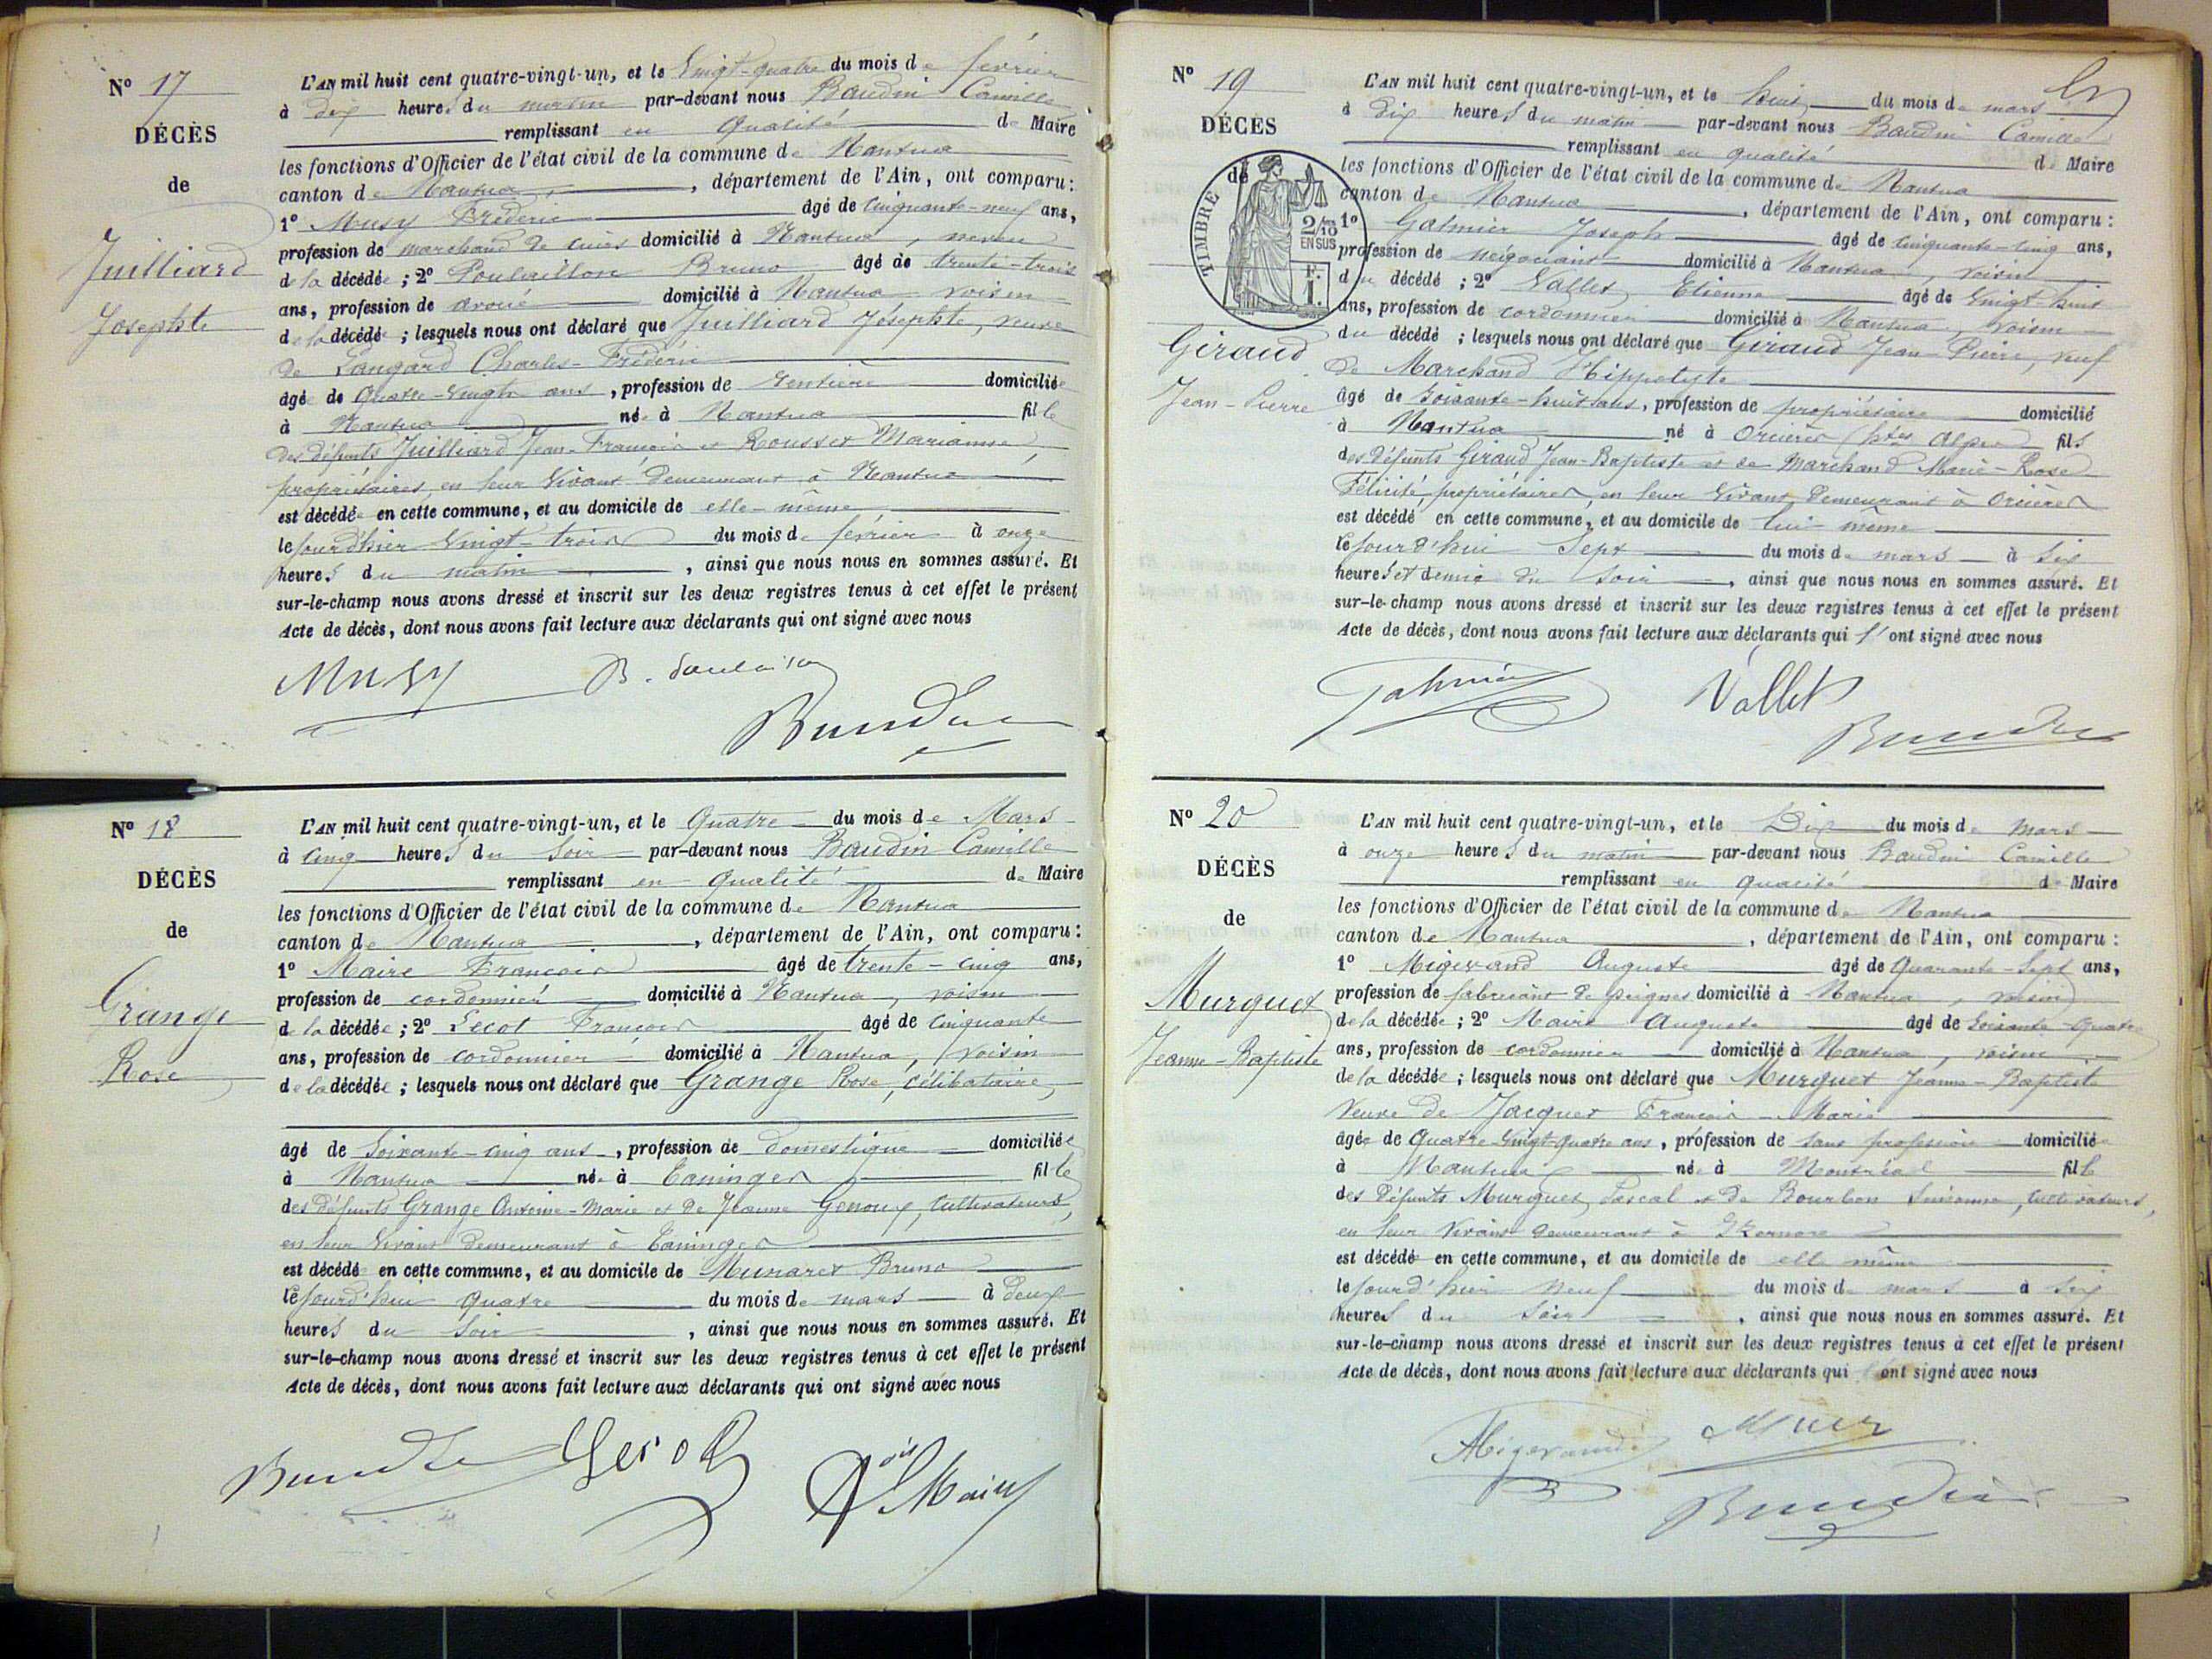 N° 17
DÉCÈS
de
Juilliard
Josephte
L'AN mil huit cent quatre-vingt-un, et le Vingt-quatre du mois de février
à dix heures du matin par-devant nous Baudin Camille
remplissant en qualité de Maire
les fonctions d'Officier de l'état civil de la commune de Nantua
canton de Nantua, département de l'Ain, ont comparu:
1° Musy Frédéric âgé de Cinquante-neuf ans,
profession de marchand de cuirs domicilié à Nantua, neveu
de la décédée; 2° Bruno âgé de trente-trois
ans, profession de avoué domicilié à Nantua voisin
de la décédée; lesquels nous ont déclaré que Juilliard Josephte, veuve
de Langard Charles-Frédéric
âgée de Quatre-Vingts ans, profession de rentière domiciliée
à Nantua née à Nantua fille
des défunts Juilliard Jean-François et Rousset Marianne,
propriétaires, en leur Vivant demeurant à Nantua
est décédée en cette commune, et au domicile de elle-même
le jourd'hier Vingt-trois du mois de février à onze
heures du matin, ainsi que nous nous en sommes assuré. Et
sur-le-champ nous avons dressé et inscrit sur les deux registres tenus à cet effet le présent
Acte de décès, dont nous avons fait lecture aux déclarants qui ont signé avec nous
Musy
Baudin
N° 18
DÉCÈS
de
Grange
Rose
L'AN mil huit cent quatre-vingt-un, et le Quatre du mois de Mars
à cinq heures du soir par-devant nous Baudin Camille
remplissant en qualité de Maire
les fonctions d'Officier de l'état civil de la commune de Nantua
canton de Nantua, département de l'Ain, ont comparu:
1° Maire François âgé de trente-cinq ans,
profession de cordonnier domicilié à Nantua, voisin
de la décédée; 2° Lecot François âgé de cinquante
ans, profession de cordonnier domicilié à Nantua, voisin
de la décédée; lesquels nous ont déclaré que Grange Rose, célibataire,
âgé de Soixante-cinq ans, profession de domestique domiciliée
à Nantua née à Taninges fille
des défunts Grange Antoine-Marie et de Jeanne Genoux, Cultivateurs,
en leur Vivant demeurant à Taninges
est décédé en cette commune, et au domicile de Munaret Bruno
le jourd'hui quatre du mois de mars à deux
heures du soir, ainsi que nous nous en sommes assuré. Et
sur-le-champ nous avons dressé et inscrit sur les deux registres tenus à cet effet le présent
Acte de décès, dont nous avons fait lecture aux déclarants qui ont signé avec nous
Baudin
Maire
N° 19
DÉCÈS
de
TIMBRE
2/10 EN SUS
F. 1.
Giraud
Jean-Pierre
L'AN mil huit cent quatre-vingt-un, et le huit du mois de mars
à dix heures du matin par-devant nous Baudin Camille
remplissant en qualité de Maire
les fonctions d'Officier de l'état civil de la commune de Nantua
canton de Nantua, département de l'Ain, ont comparu:
1° Galmier Joseph âgé de cinquante-cinq ans,
profession de négociant domicilié à Nantua, voisin
du décédé; 2° Vallet Etienne âgé de Vingt-huit
ans, profession de cordonnier domicilié à Nantua, voisin
du décédé; lesquels nous ont déclaré que Giraud Jean-Pierre, veuf
de Marchand Hippolyte
âgé de Soixante-huit ans, profession de propriétaire domicilié
à Nantua né à Orcières (htes Alpes) fils
des défunts Giraud Jean-Baptiste et de Marchand Marie-Rose
Félicité, propriétaires, en leur Vivant demeurant à Orcières
est décédé en cette commune, et au domicile de lui-même
le jourd'hui Sept du mois de mars à six
heures et demie du soir, ainsi que nous nous en sommes assuré. Et
sur-le-champ nous avons dressé et inscrit sur les deux registres tenus à cet effet le présent
Acte de décès, dont nous avons fait lecture aux déclarants qui l'ont signé avec nous
Galmier
Vallet
Baudin
N° 20
DÉCÈS
de
Murguet
Jeanne-Baptiste
L'AN mil huit cent quatre-vingt-un, et le Dix du mois de mars
à onze heures du matin par-devant nous Baudin Camille
remplissant en qualité de Maire
les fonctions d'Officier de l'état civil de la commune de Nantua
canton de Nantua, département de l'Ain, ont comparu:
1° Migerand Auguste âgé de Quarante-Sept ans,
profession de fabricant de peignes domicilié à Nantua, voisin
de la décédée; 2° Maire Auguste âgé de Soixante-quatre
ans, profession de cordonnier domicilié à Nantua, voisin
de la décédée; lesquels nous ont déclaré que Murguet Jeanne-Baptiste
Veuve de Jacquet François-Marie
âgée de Quatre-Vingt-Quatre ans, profession de sans profession domiciliée
à Nantua née à Montréal fille
des défunts Murguet Pascal et de Bourbon Suzanne, cultivateurs,
en leur Vivant demeurant à Izernore
est décédé en cette commune, et au domicile de elle même
le jourd'hier neuf du mois de mars à six
heures du soir, ainsi que nous nous en sommes assuré. Et
sur-le-champ nous avons dressé et inscrit sur les deux registres tenus à cet effet le présent
Acte de décès, dont nous avons fait lecture aux déclarants qui l'ont signé avec nous
Migerand
Baudin